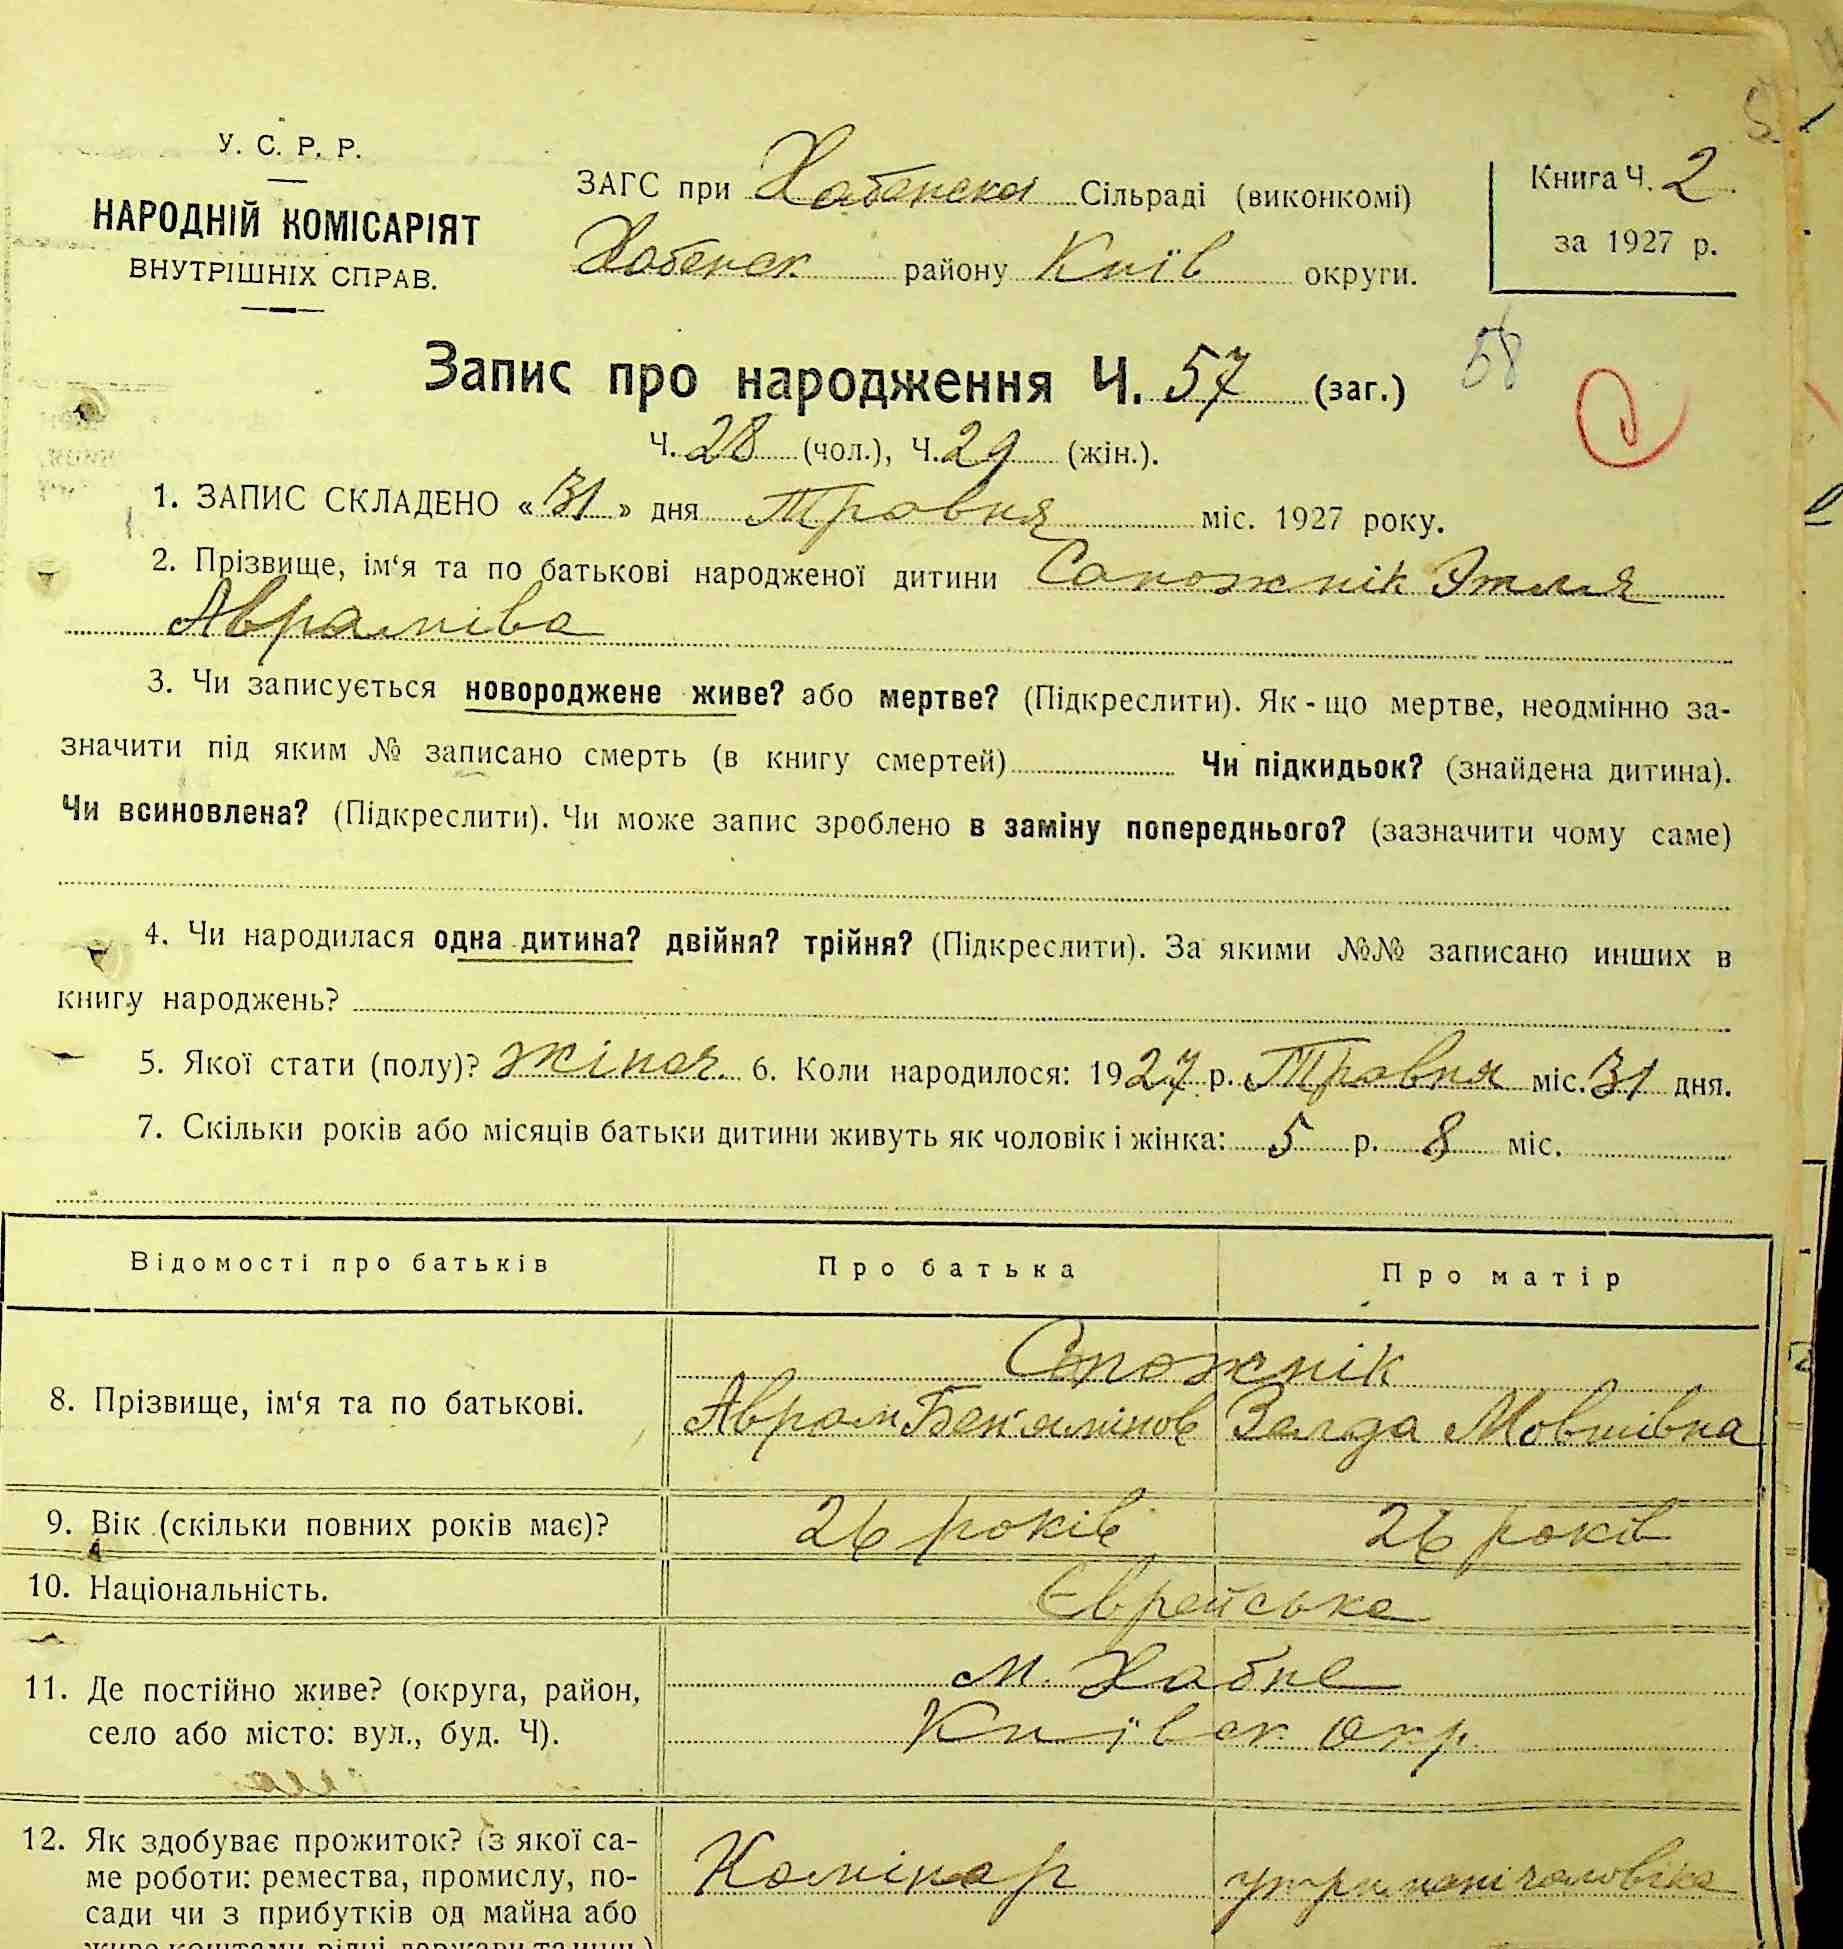 У. С. Р. Р.
НАРОДНІЙ КОМІСАРІЯТ
ВНУТРІШНІХ СПРАВ.
ЗАГС при Хабенской Сільраді (виконкомі)
Хабенск району Київ округи.
Книга Ч. 2
за 1927 р.
Запис про народження Ч. 57 (заг.) 58
Ч. 28 (чол.), Ч. 29 (жін.).
1. ЗАПИС СКЛАДЕНО « 31 » дня Травня міс. 1927 року.
2. Прізвище, ім‘я та по батькові народженої дитини Сапожнік Этля
Аврамівa
3. Чи записується новороджене живе? або мертве? (Підкреслити). Як-що мертве, неодмінно за-
значити під яким № записано смерть (в книгу смертей) Чи підкидьок? (знайдена дитина).
Чи всиновлена? (Підкреслити). Чи може запис зроблено в заміну попереднього? (зазначити чому саме)
4. Чи народилася одна дитина? двійня? трійня? (Підкреслити). За якими №№ записано инших в
книгу народжень?
5. Якої стати (полу)? жіноч. 6. Коли народилося: 1927 р. Травня міс. 31 дня.
7. Скільки років або місяців батьки дитини живуть як чоловік і жінка: 5 р. 8 міс.
Відомості про батьків Про батька Про матір
Сапожнік
8. Прізвище, ім‘я та по батькові. Аврам Бен'ямінов Зелда Мовшівна
9. Вік (скільки повних років має)? 26 років 26 років
10. Національність. Єврейська
11. Де постійно живе? (округа, район, м. Хабне
село або місто: вул., буд. Ч). Київск. окр.
12. Як здобуває прожиток? (з якої са-
ме роботи: ремества, промислу, по- Комінар утриманні чоловіка
сади чи з прибутків од майна або
живе коштами рідні, держави та инш.)